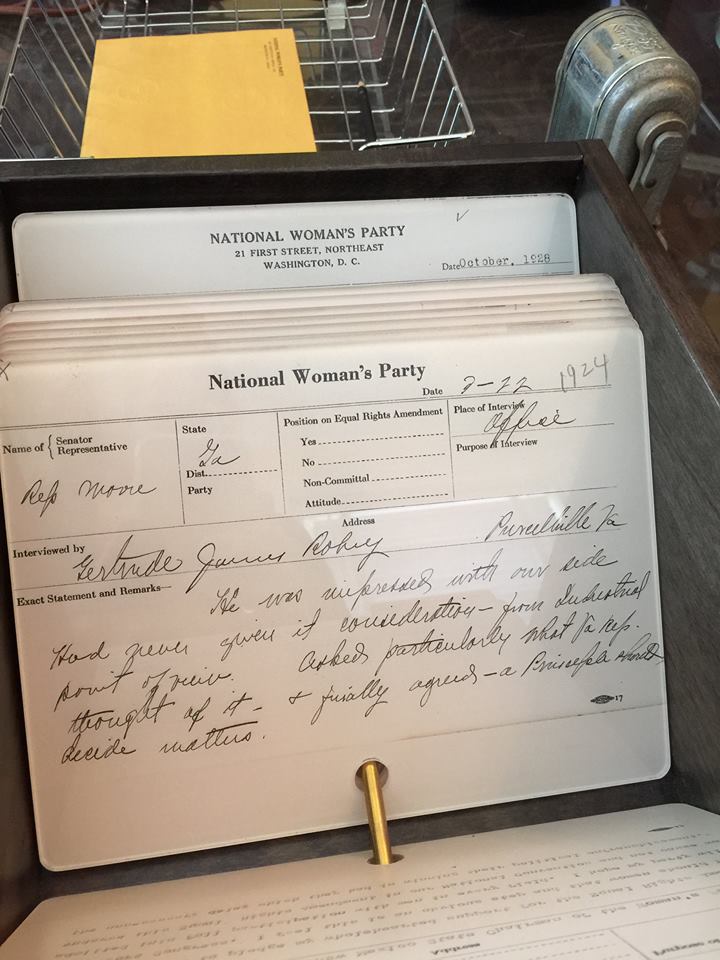 NATIONAL WOMAN'S PARTY
21 FIRST STREET, NORTHEAST
WASHINGTON, D. C.
Date October, 1928
National Woman's Party
Date 1924
Name of { Senator
Representative
Rep Moore
State
Ga
Dist.
Party
Position on Equal Rights Amendment
Yes
No
Non-Committal
Attitude
Place of Interview
Office
Purpose of Interview
Address
Interviewed by Gertrude James Purcellville Va
Exact Statement and Remarks—
He was impressed with our side
Had never given it consideration – from Industrial
point of view. Asked particularly what Va Rep.
thought of it – & finally agreed – a Principle should
decide matters.
17